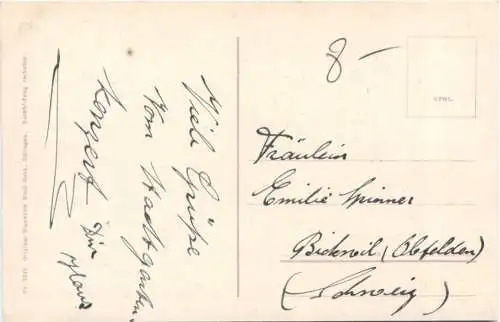 Viele Grüße
vom Stadtgarten-
Konzert
8 —
Fräulein
Emilie Spinner
Bickwil (Obfelden)
(Schweiz)